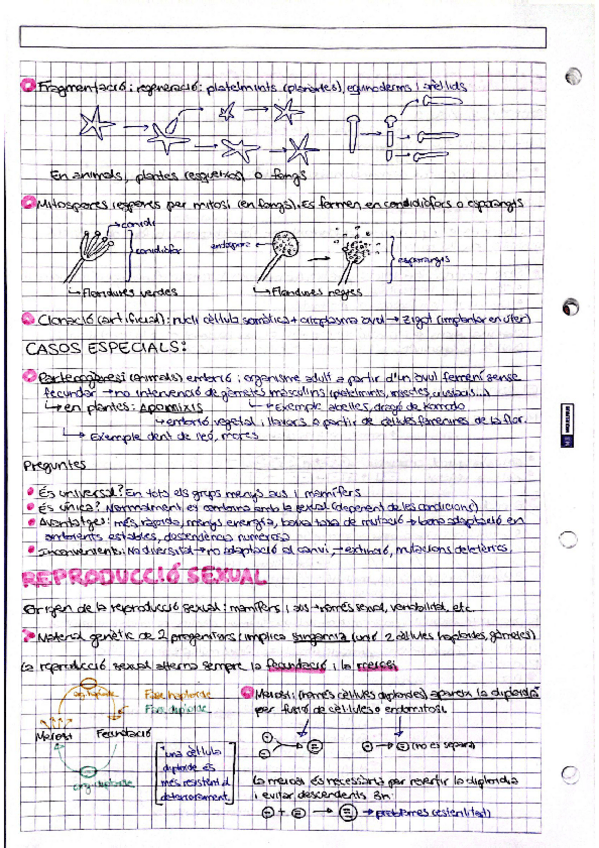 Fragmentació i regeneració: platelmints (planàries), equinoderms i anèl·lids
En animals, plantes (esqueixos) o fongs
Mitospores (espores per mitosi (en fongs). Es formen en conidiòfors o esporangis
conidi
conidiòfor
endospora
esporangis
Floridures verdes
Floridures negres
Clonació (artificial): nucli cèl·lula somàtica + citoplasma òvul → zigot (implantar en úter)
CASOS ESPECIALS:
Partenogènesi (animals) embrió i organisme adult a partir d'un òvul femení sense
fecundar → no intervenció de gàmetes masculins (platelmints, insectes, crustacis...)
en plantes: Apomixis
Exemple abelles, dragó de komodo
embrió vegetal i llavors a partir de cèl·lules femenines de la flor.
Exemple dent de lleó, mores
Preguntes
És universal? En tots els grups menys aus i mamífers
És única? Normalment es combina amb la sexual (depenent de les condicions)
Avantatges: més ràpida, menys energia, baixa taxa de mutació → bona adaptació en
ambients estables, descendència numerosa
Inconvenient: No diversitat → no adaptació al canvi, → extinció, mutacions deletèries.
REPRODUCCIÓ SEXUAL
Origen de la reproducció sexual: mamífers i aus → només sexual, variabilitat, etc.
Material genètic de 2 progenitors: implica singamia (unió 2 cèl·lules haploides, gàmetes)
La reproducció sexual alterna sempre la fecundació i la meiosi
org. haploide
Fase haploide
Fase diploide
Meiosi
Fecundació
org. diploide
"una cèl·lula
diploide és
més resistent al
deteriorament"
Meiosi: (només cèl·lules diploides) apareix la diploidia
per fusió de cèl·lules o endomitosi.
(no es separa)
La meiosi és necessària per revertir la diploidia
i evitar descendents 3n:
→ problemes (esterilitat)